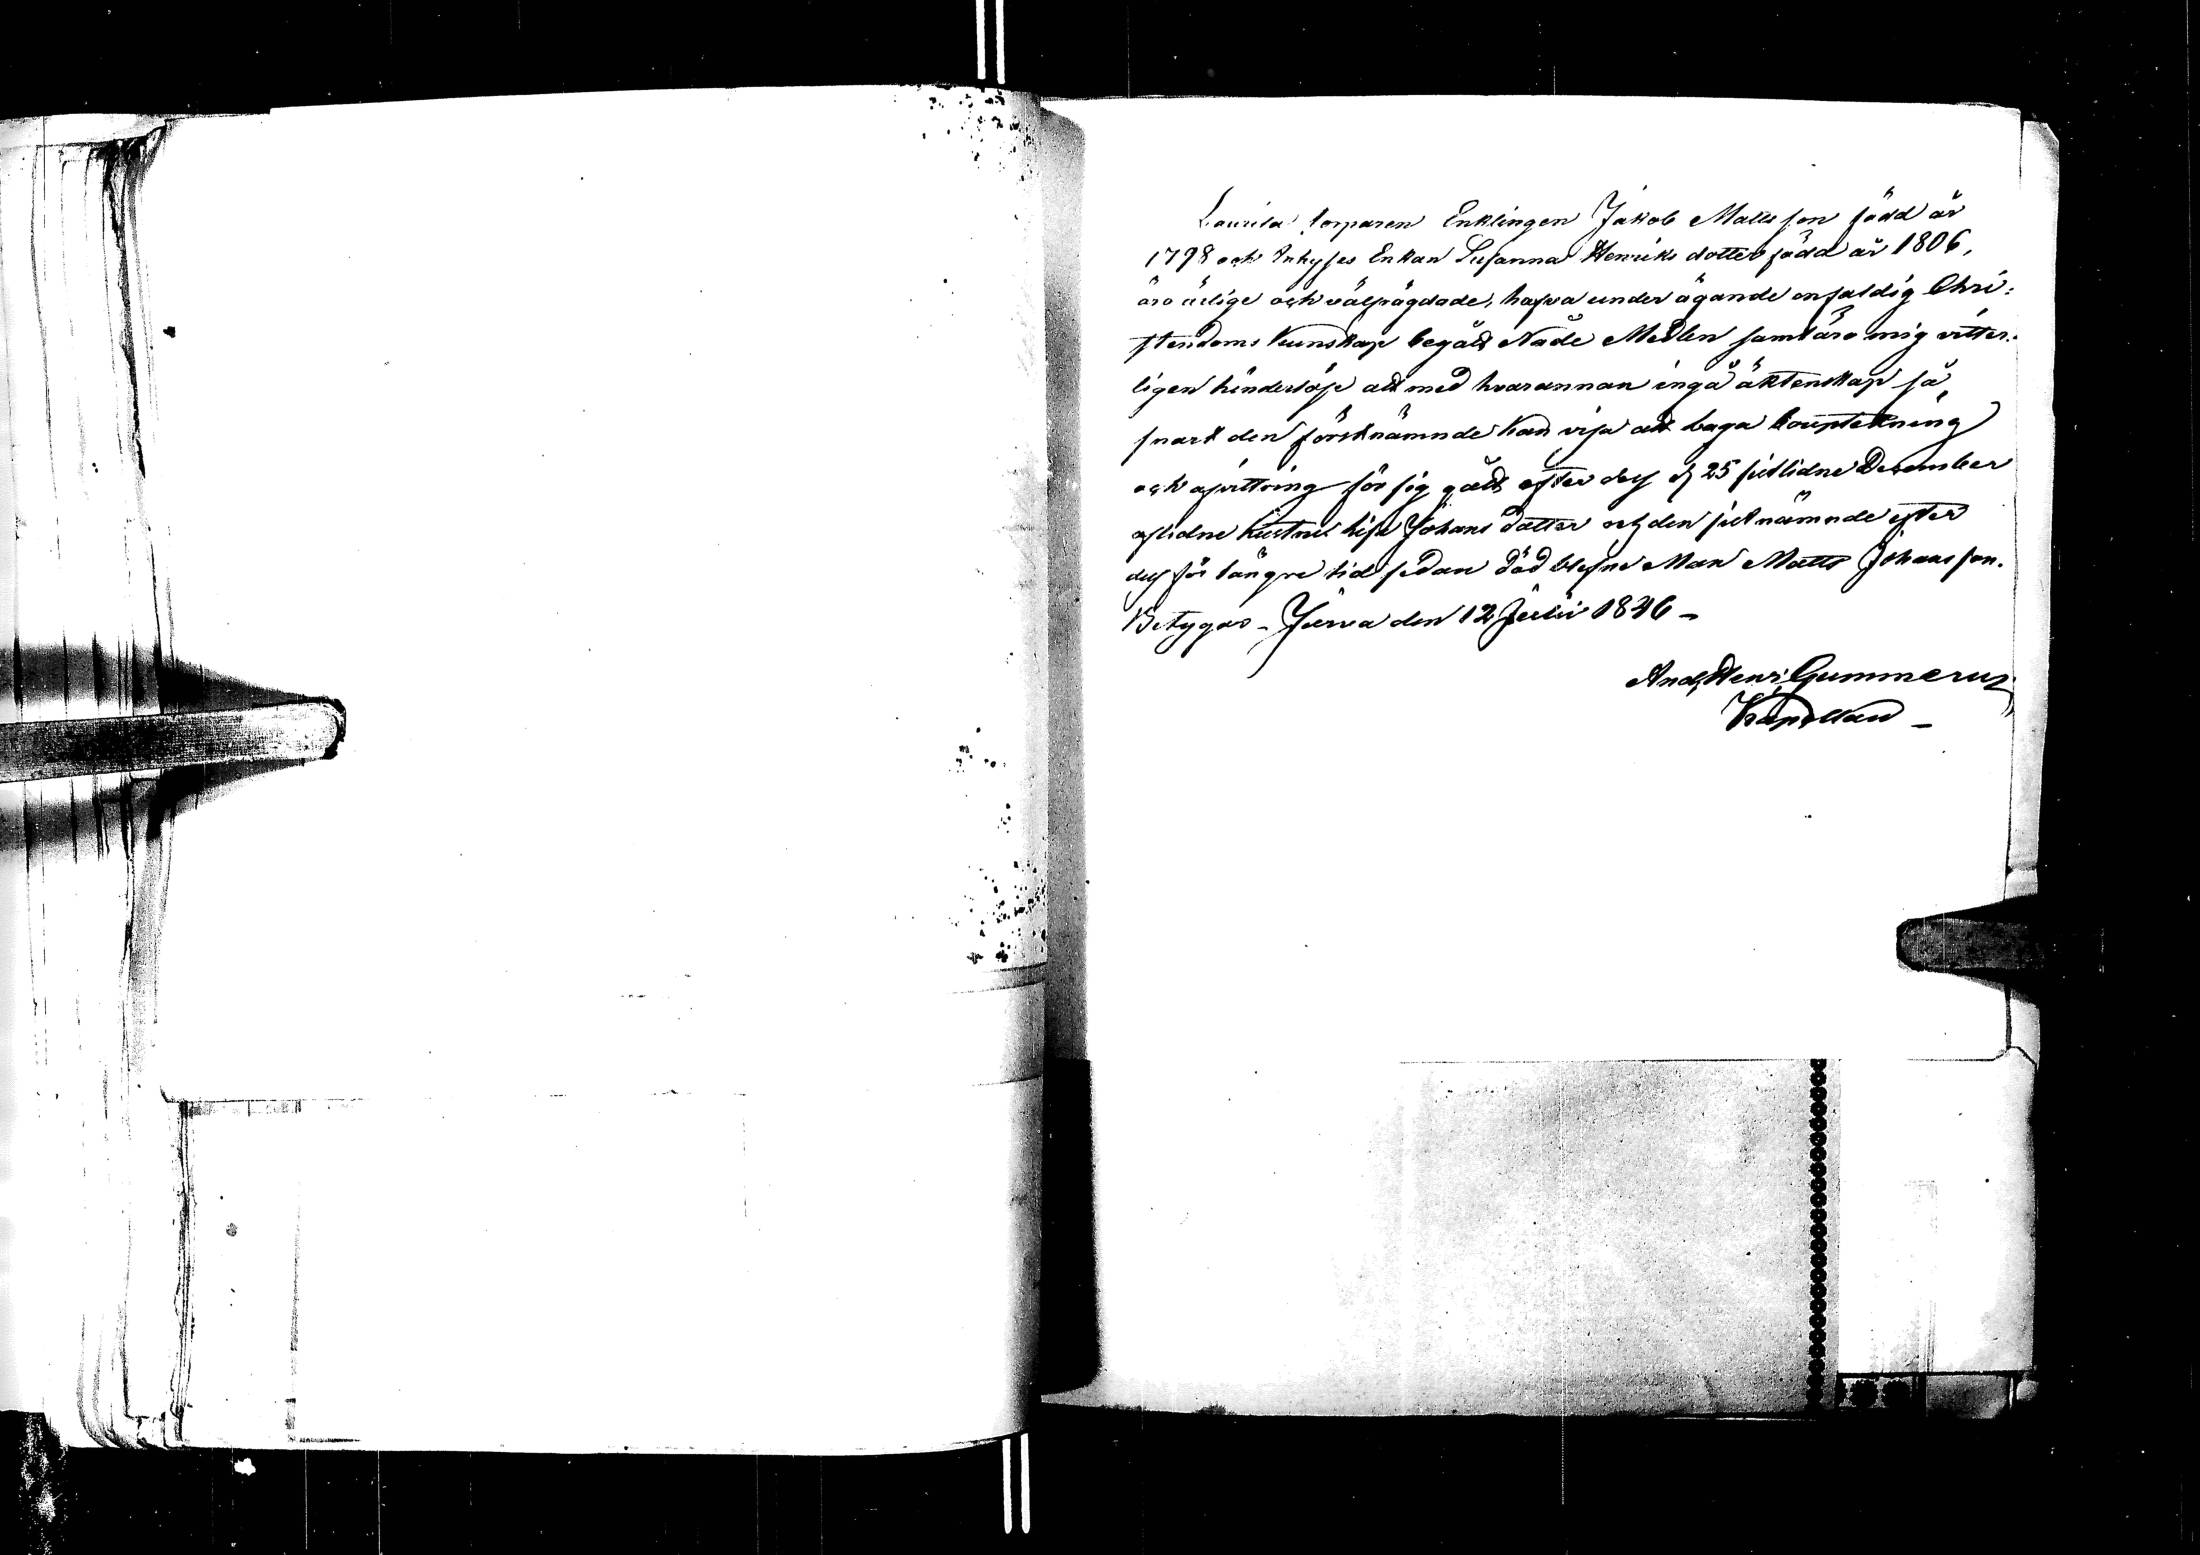 Laurila torparen Enklingen Jakob Matts son född år
1798 och Inhyses Enkan Susanna Henriks dotter född år 1806,
äro ärlige och välfrägdade, hafva under ägande enfaldig Chri:
stendoms Kunskap begått Nåde Medlen samt äro mig vitter:
ligen hinderlöse att med hvarannan ingå äktenskap så
snart den förstnämnde kan visa att laga bouptekning
och afvittring för sig gått efter dess d 25 sistlidne December
aflidne hustru Lisa Johans dotter och den sistnämnde efter
dess för längre tid sedan död blefne Man Matts Johansson.
Betygas - Jurva den 12 Julii 1846 -
And. Henr. Gummerus
Kapellan -